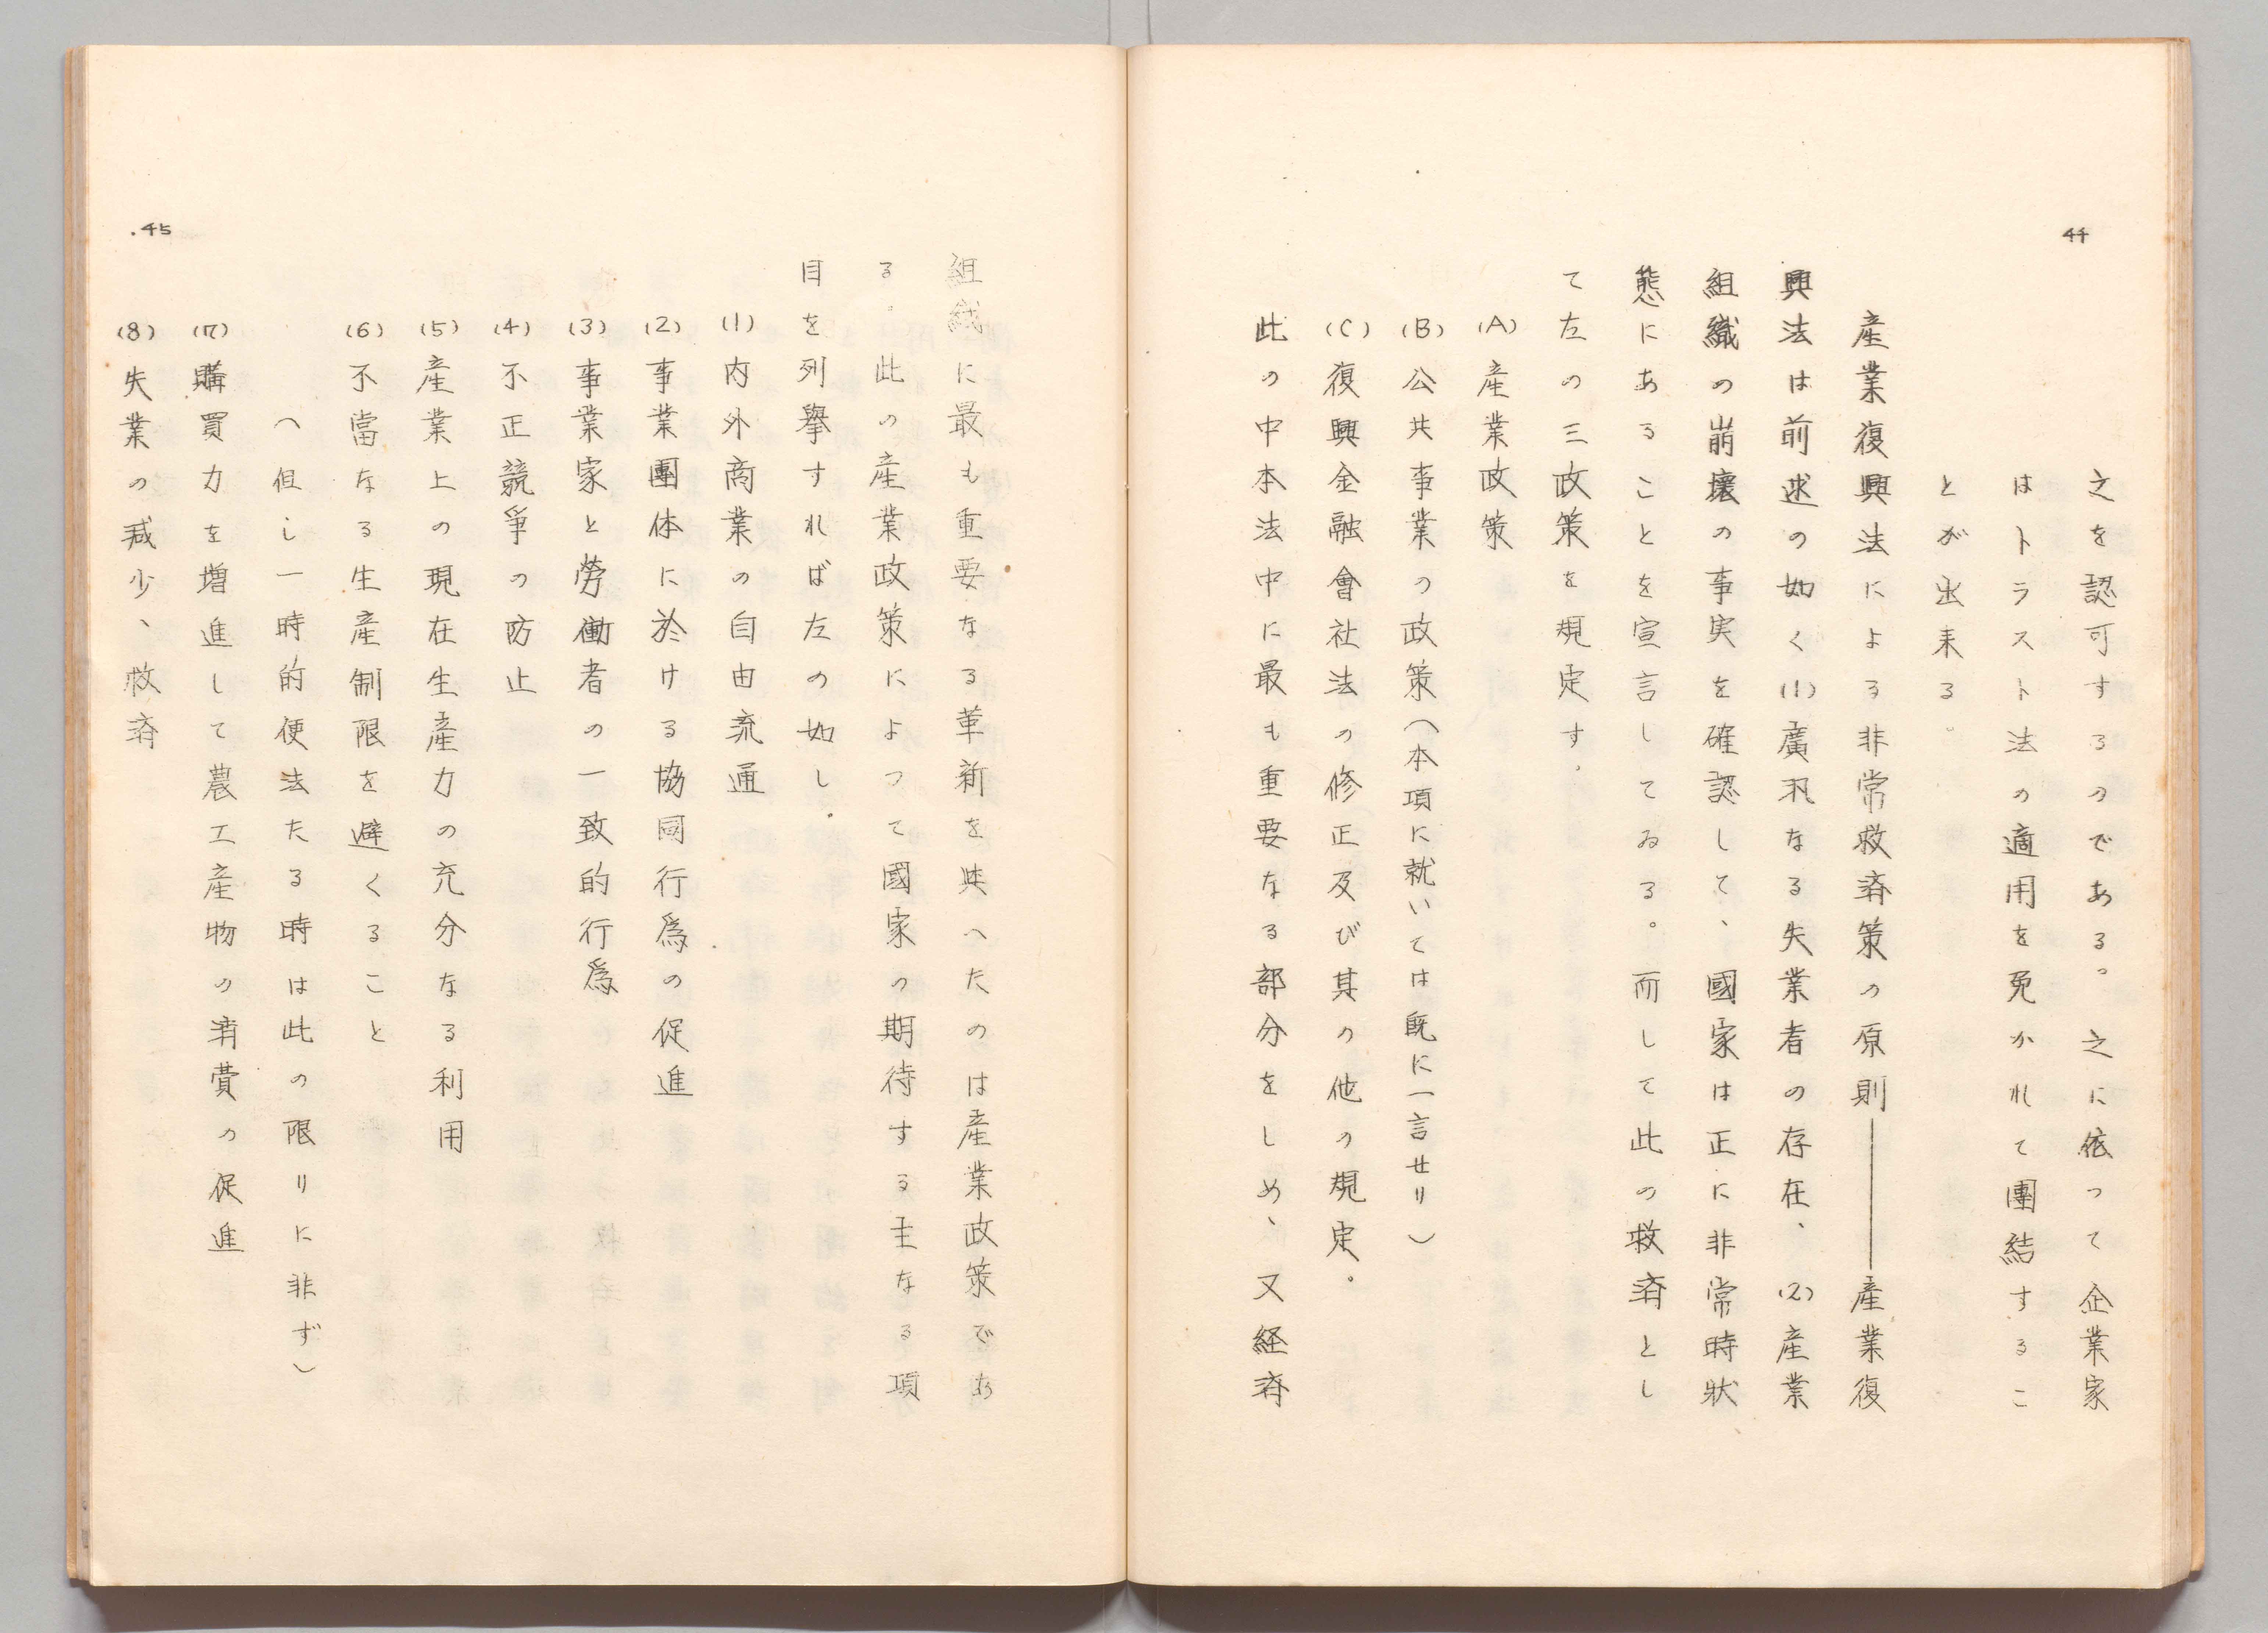 44
之を認可するのである。之に依って企業家
はトラスト法の適用を免かれて團結するこ
とが出来る。
産業復興法による非常救済策の原則——産業復
興法は前述の如く(1)廣汎なる失業者の存在、(2)産業
組織の崩壊の事実を確認して、國家は正に非常時狀
態にあることを宣言してゐる。而して此の救済とし
て左の三政策を規定す。
(A)産業政策
(B)公共事業の政策(本項に就いては既に一言せり)
(C)復興金融會社法の修正及び其の他の規定。
此の中本法中に最も重要なる部分をしめ、又経済
.45
組織に最も重要なる革新を與へたのは産業政策であ
る。此の産業政策によつて國家の期待する主なる項
目を列擧すれば左の如し。
(1)内外商業の自由流通
(2)事業團体に於ける協同行爲の促進
(3)事業家と勞働者の一致的行爲
(4)不正競爭の防止
(5)産業上の現在生産力の充分なる利用
(6)不當なる生産制限を避くること
(但し一時的便法たる時は此の限りに非ず)
(7)購買力を増進して農工産物の消費の促進
(8)失業の减少、救済